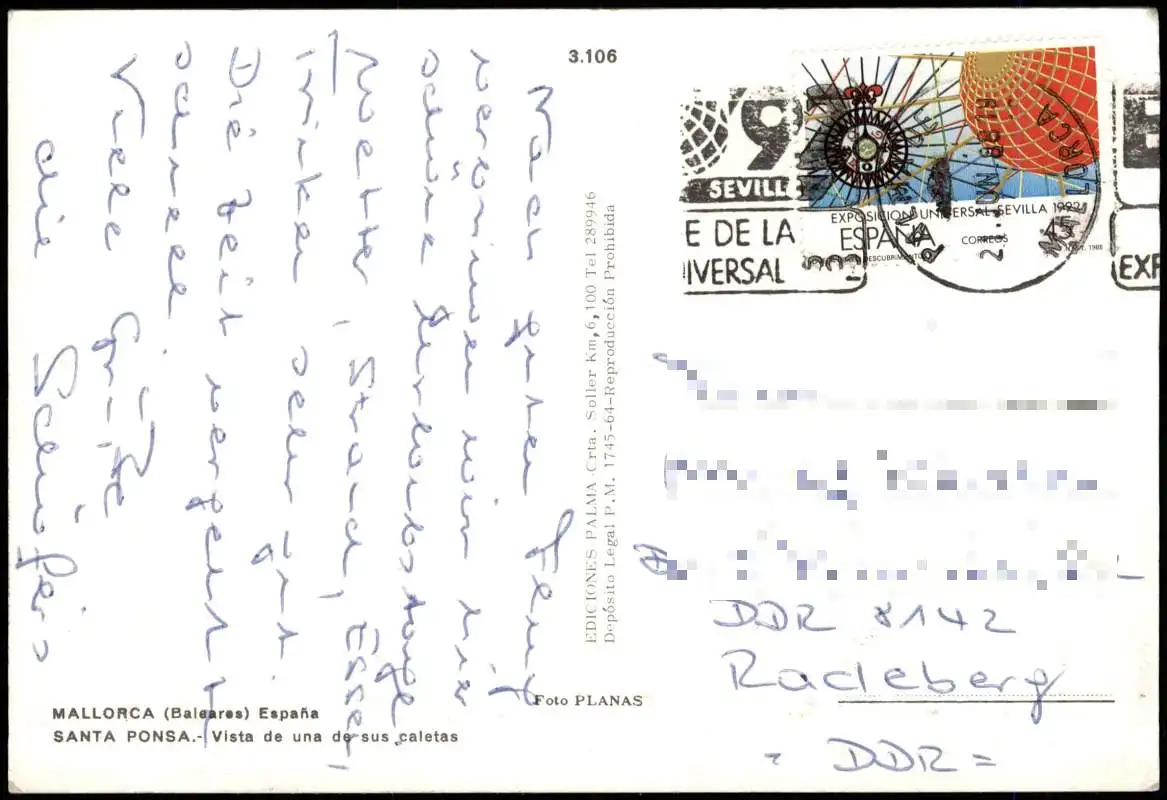 3.106
Nach gutem Flug
verbringen wir hier
schöne Urlaubstage
Wetter, Strand, Essen
trinken sehr gut.
Die Zeit vergeht
schnell
Viele Grüße
die
MALLORCA (Baleares) España
SANTA PONSA.- Vista de una de sus caletas
EDICIONES PALMA-Crta. Soller Km,6,100 Tel 289946
Depósito Legal P.M. 1745-64-Reproducción Prohibida
Foto PLANAS
9
SEVILL
E DE LA
IVERSAL
EXPOSICION UNIVERSAL SEVILLA 1992
ESPAÑA
CORREOS
45
DESCUBRIMIENTO
MALLORCA
E
EXP
DDR 8142
Radeberg
- DDR =